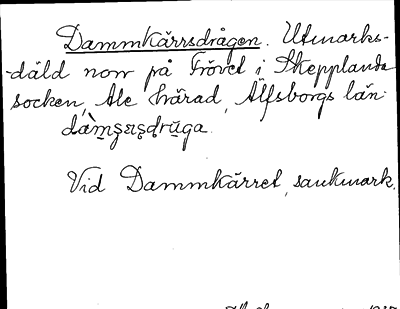 Dammkärrsdrågen. Utmarks-
-däld norr på Frövet i Skepplanda
socken, Ale härad, Älfsborgs län.
Vid Dammkärret, sankmark.